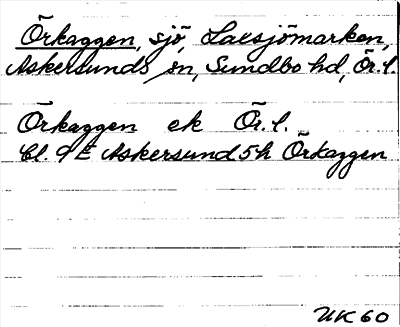 Örkaggen, sjö, Laxsjömarken,
Askersunds sn, Sundbo hd, Ör. l.
Örkaggen ek Ör. l.
Bl. 9E Askersund 5h Örkaggen
UK 60